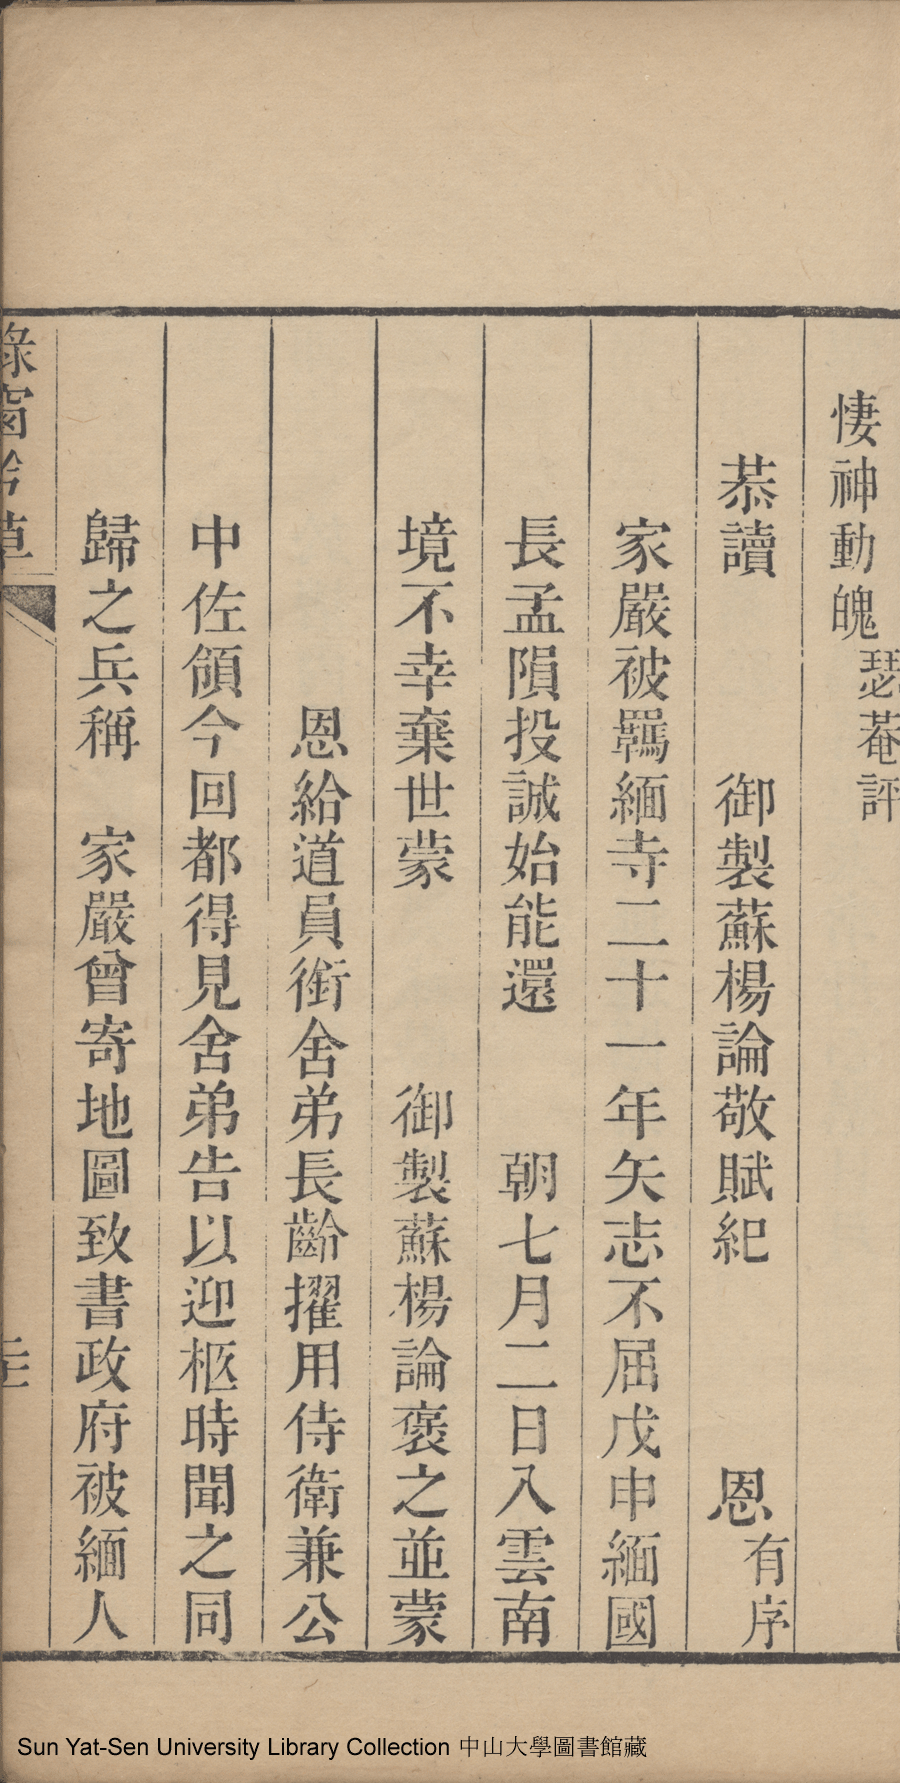 悽神動魄瑟菴評
恭讀 御製蘇楊論敬賦紀 恩有序
家嚴被羈緬寺二十一年矢志不屈戊申緬國
長孟隕投誠始能還 朝七月二日入雲南
境不幸棄世蒙 御製蘇楊論褒之並蒙
恩給道員銜舍弟長齡擢用侍衛兼公
中佐領今回都得見舍弟告以迎柩時聞之同
歸之兵稱 家嚴曾寄地圖致書政府被緬人
綠窗吟草
Sun Yat-Sen University Library Collection 中山大學圖書館藏